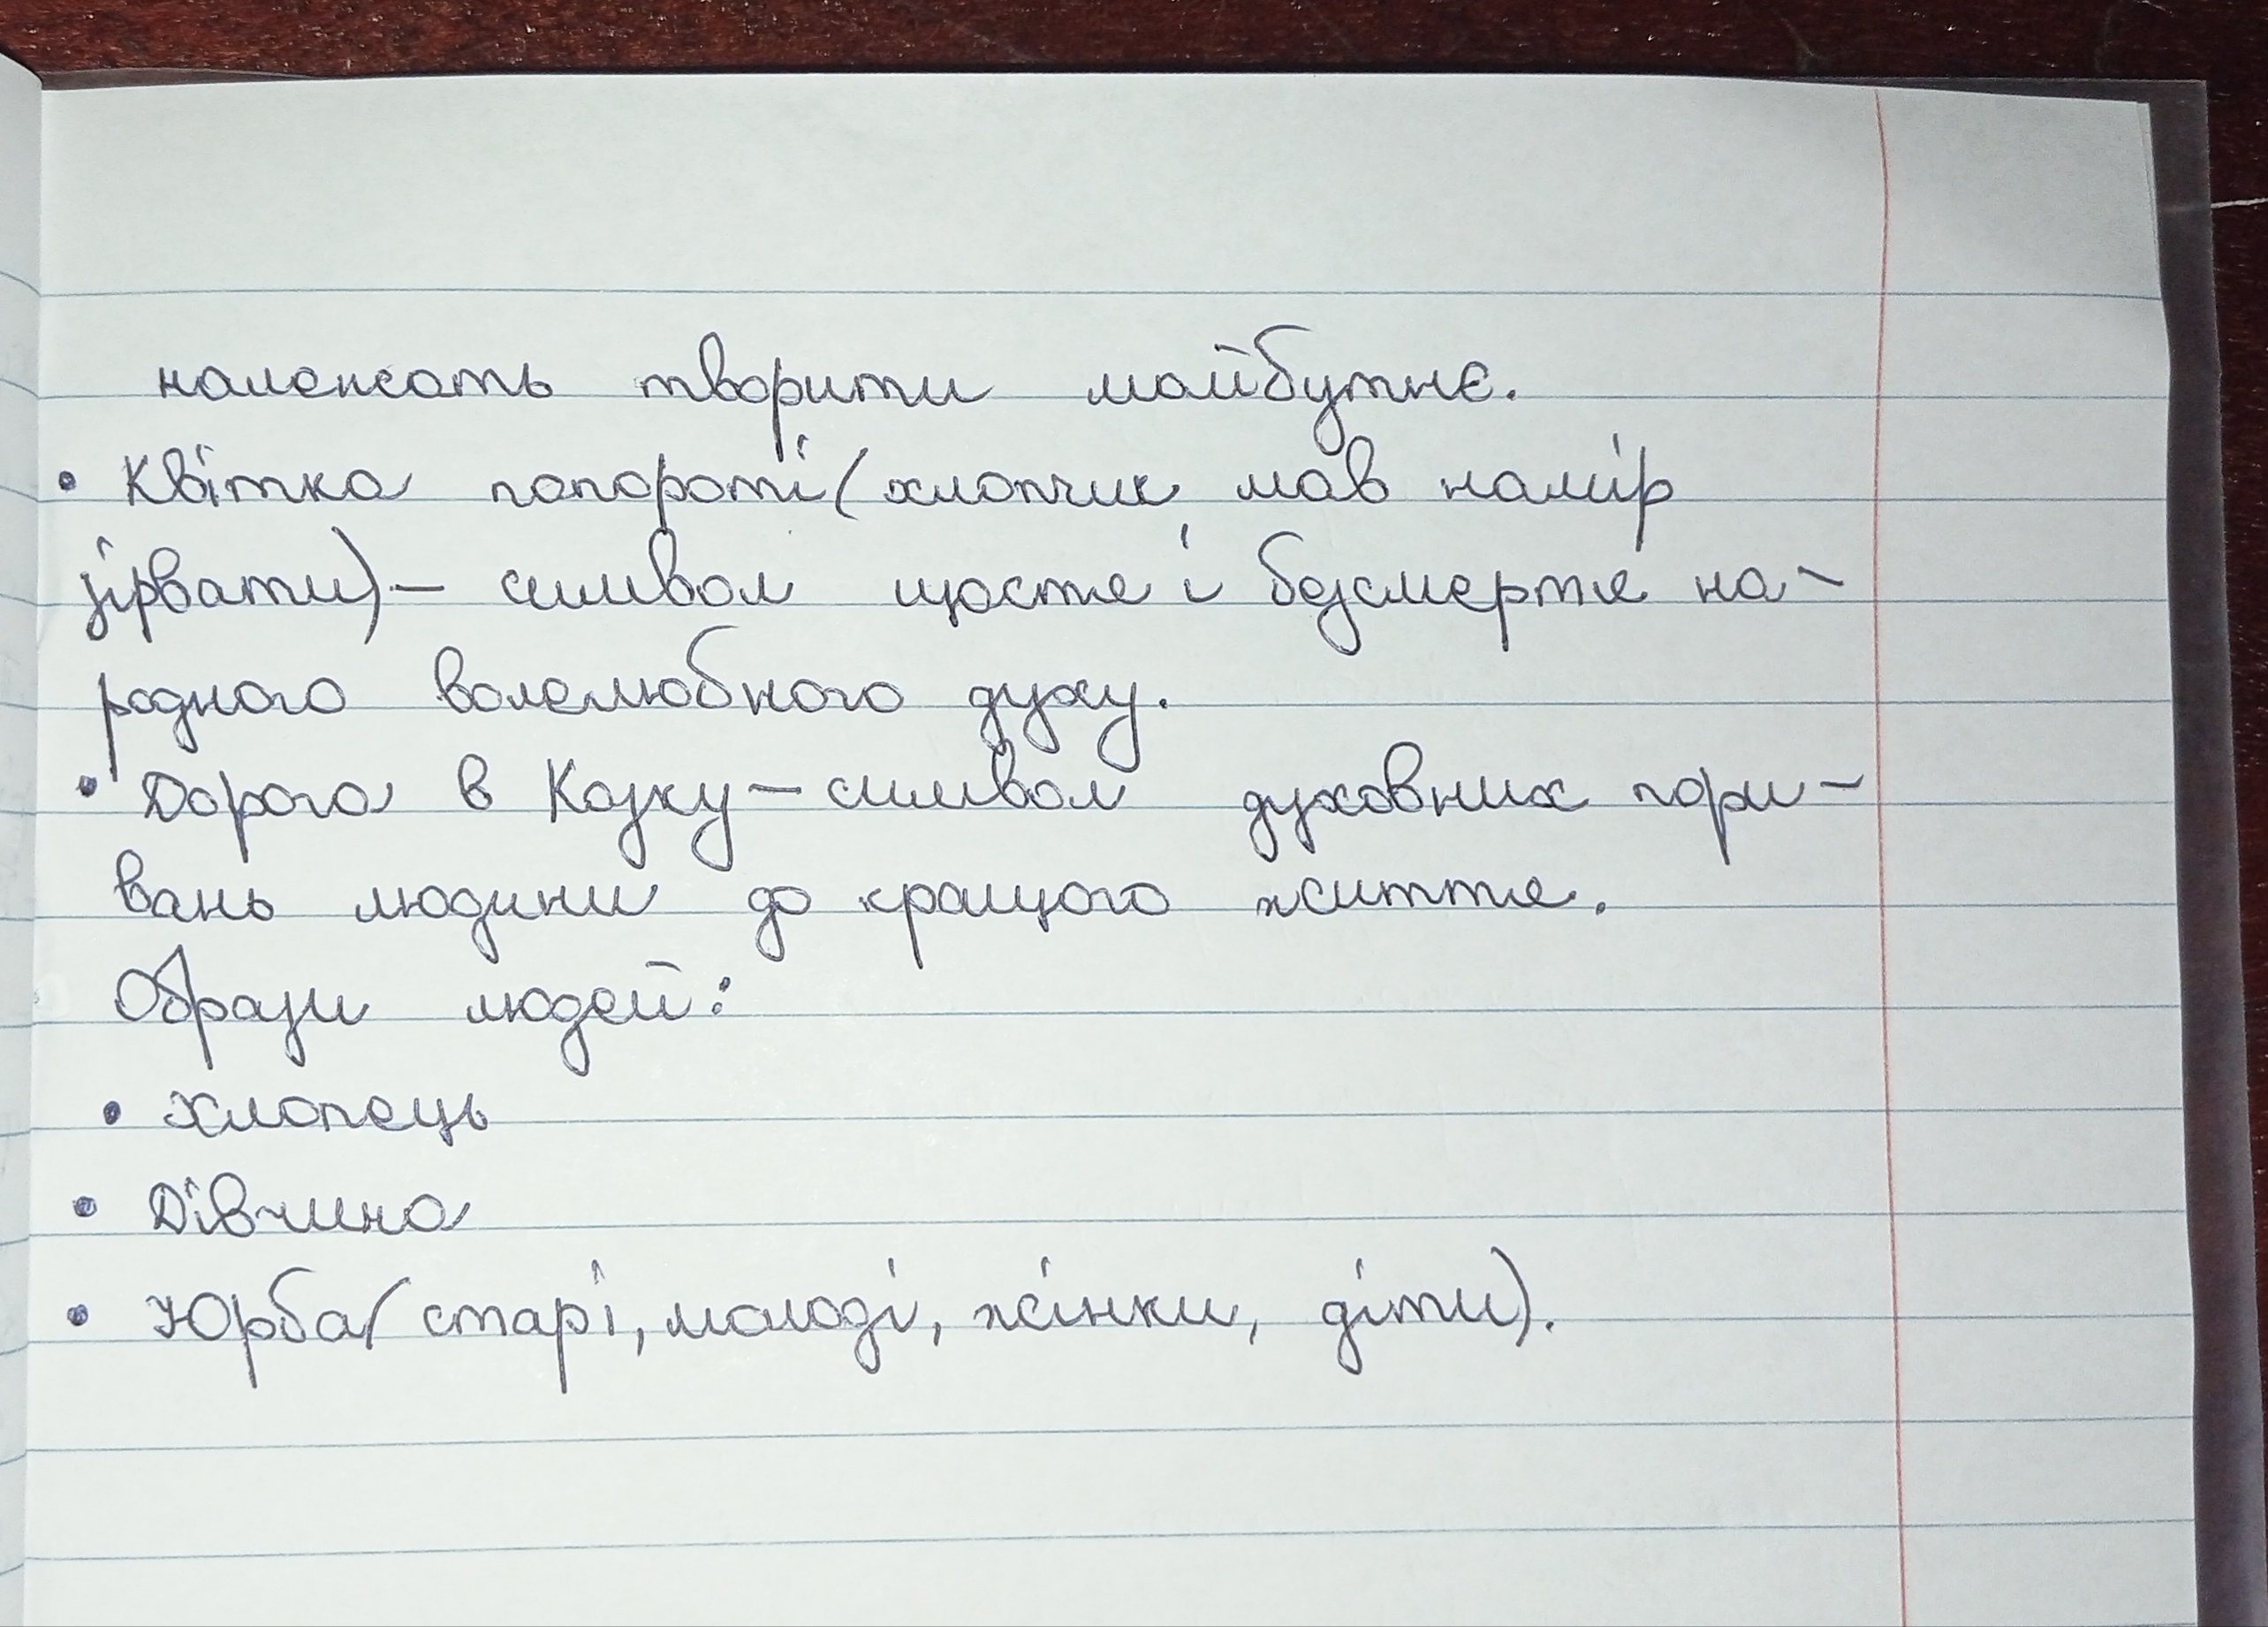 належать творити майбутнє.
• Квітка папороті (хлопчик мав намір
зірвати) – символ щастя і безсмертя на-
родного волелюбного духу.
• Дорога в Казку – символ духовних пори-
вань людини до кращого життя.
Образи людей:
• Хлопець
• Дівчина
• Юрба (старі, молоді, жінки, діти).